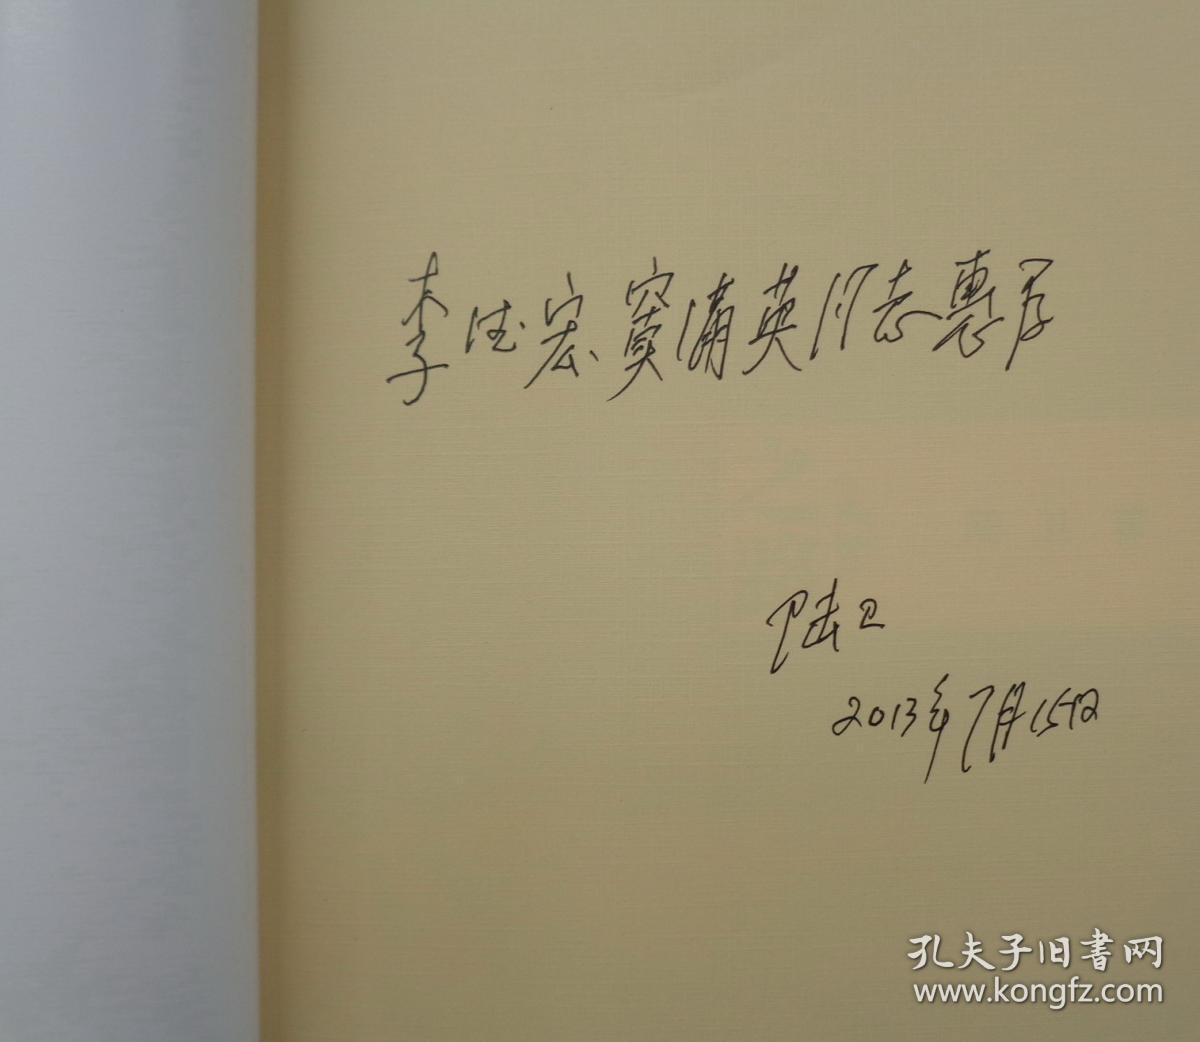 李德宏、窦清英同志惠存
陆卫
2013年7月15日
孔夫子旧书网
www.kongfz.com